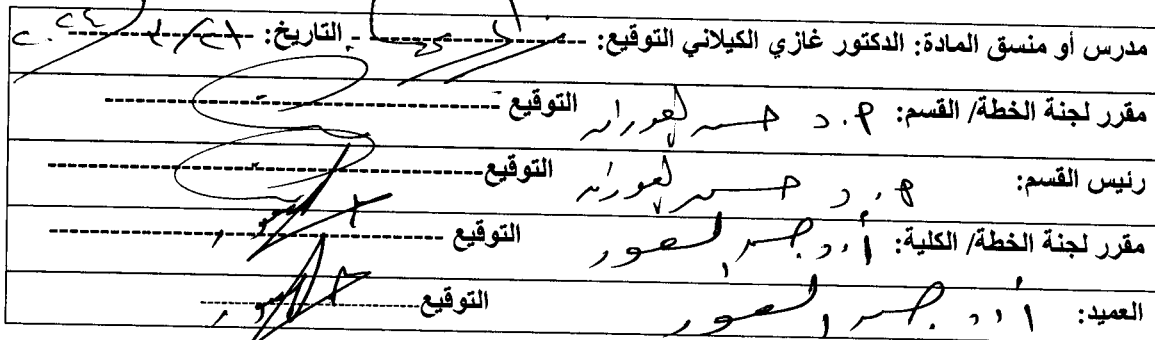 مدرس أو منسق المادة: الدكتور غازي الكيلاني التوقيع: ---------------- التاريخ:
مقرر لجنة الخطة/ القسم: م.د حسن العوران التوقيع ----------------
رئيس القسم: م.د حسن العوران التوقيع ----------------
مقرر لجنة الخطة/ الكلية: أ.د التوقيع ----------------
العميد: أ.د التوقيع ----------------